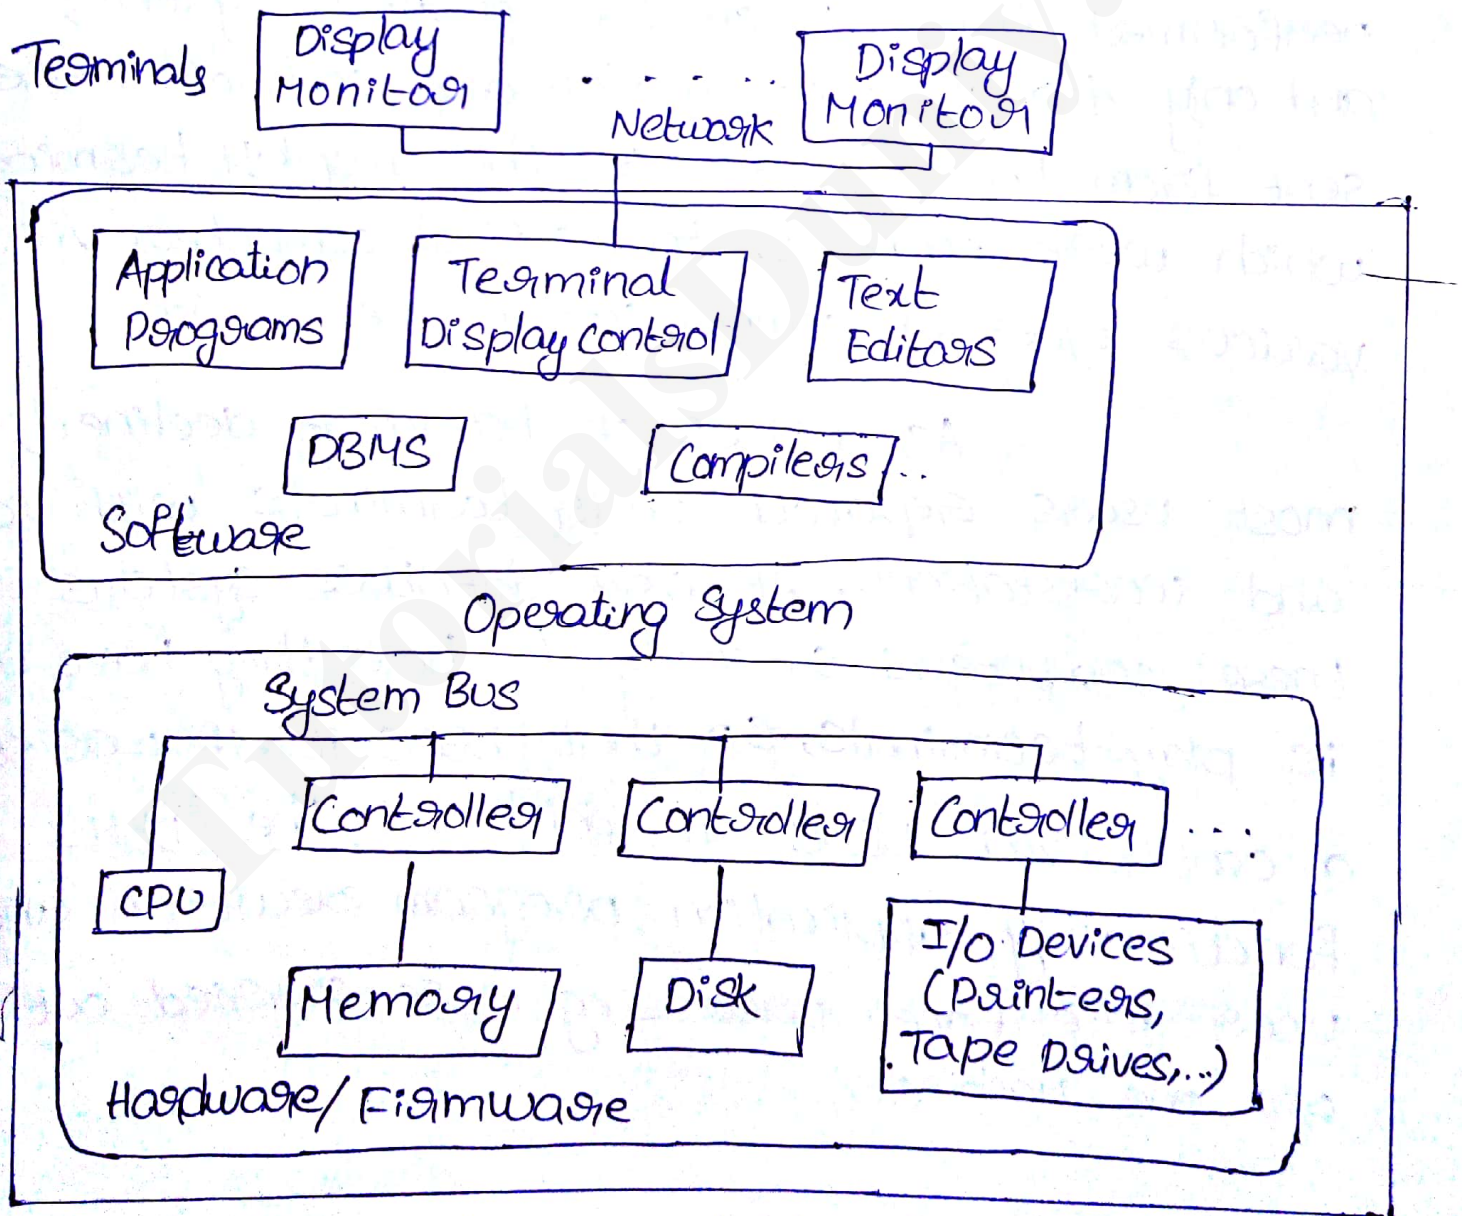 Terminals
Display
Monitor
. . . . . .
Display
Monitor
Network
Application
Programs
Terminal
Display Control
Text
Editors
DBMS
Compilers
..
Software
Operating System
System Bus
Controller
Controller
Controller
...
CPU
Memory
Disk
I/O Devices
(Printers,
Tape Drives,...)
Hardware/Firmware
TutorialsDuniya.